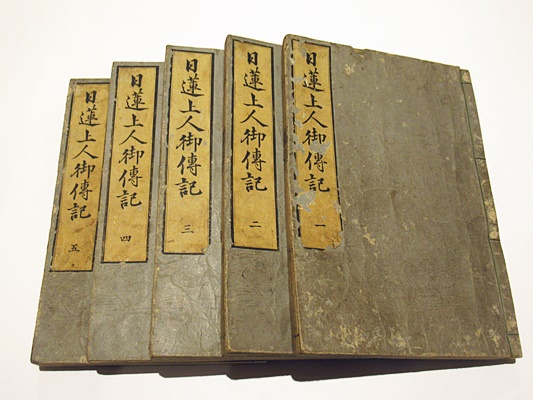 日蓮上人御傳記 一
日蓮上人御傳記 二
日蓮上人御傳記 三
日蓮上人御傳記 四
日蓮上人御傳記 五